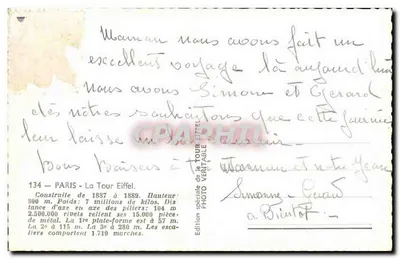 Maman nous avons fait un
excellent voyage là aujourd'hui
nous avons Simone et Gérard
dès nôtres souhaitons que cette journée
leur laisse un bon
Bons Baisers à Maman et notre
Simonne Gérard
a Bientôt
134 — PARIS - La Tour Eiffel.
Construite de 1887 à 1889. Hauteur:
300 m. Poids: 7 millions de kilos. Dis
tance d'axe en axe des piliers: 104 m
2.500.000 rivets relient ses 15.000 pièces
de métal. La 1re plate-forme est à 57 m.
La 2e à 115 m. La 3e à 280 m. Les esca-
liers comportent 1.710 marches.
Edition spéciale de la TOUR EIFFEL
PHOTO VERITABLE
CPARAMA